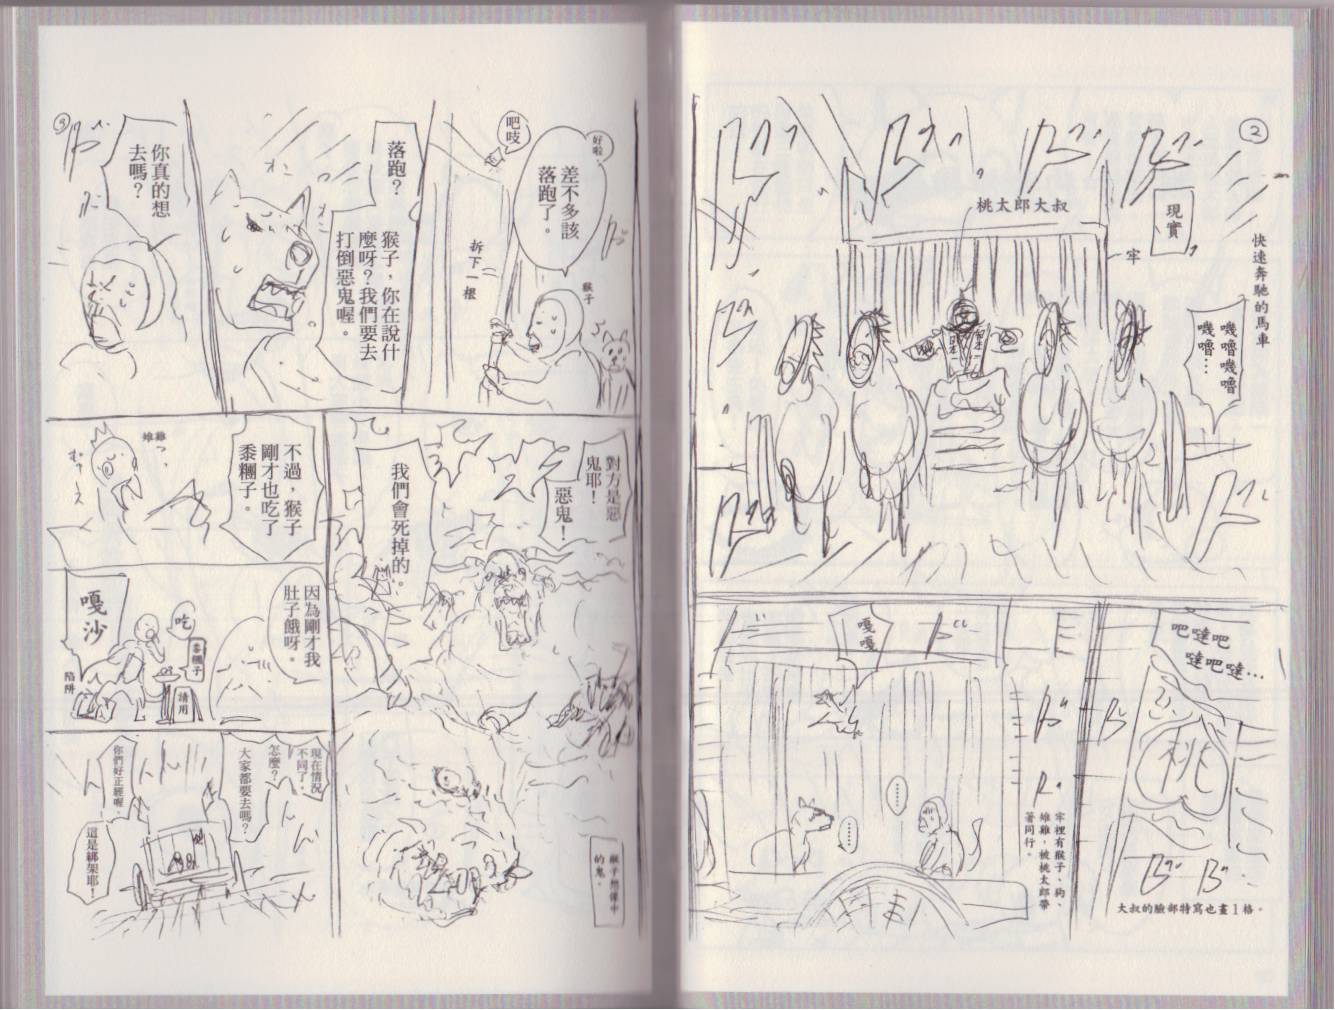 2
現實
快速奔馳的馬車
嘰嚕嘰嚕
嘰嚕…
桃太郎大叔
牢
日本一
吧噠吧
噠吧噠…
桃
大叔的臉部特寫也畫1格。
嘎
嘎
……
……
牢裡有猴子、狗、
雉雞,被桃太郎帶
著同行。
3
好啦
差不多該
落跑了。
吧吱
猴子
拆下一根
落跑?
猴子,你在說什
麼呀?我們要去
打倒惡鬼喔。
你真的想
去嗎?
對方是惡
鬼耶!
惡鬼!
我們會死掉的…
猴子想像中
的鬼。
不過,猴子
剛才也吃了
黍糰子。
雉雞
因為剛才我
肚子餓呀。
吃
黍糰子
請用
嘎沙
陷阱
現在情況
不同了。
怎麼?
大家都要去嗎?
你們好正經喔。
這是綁架耶!